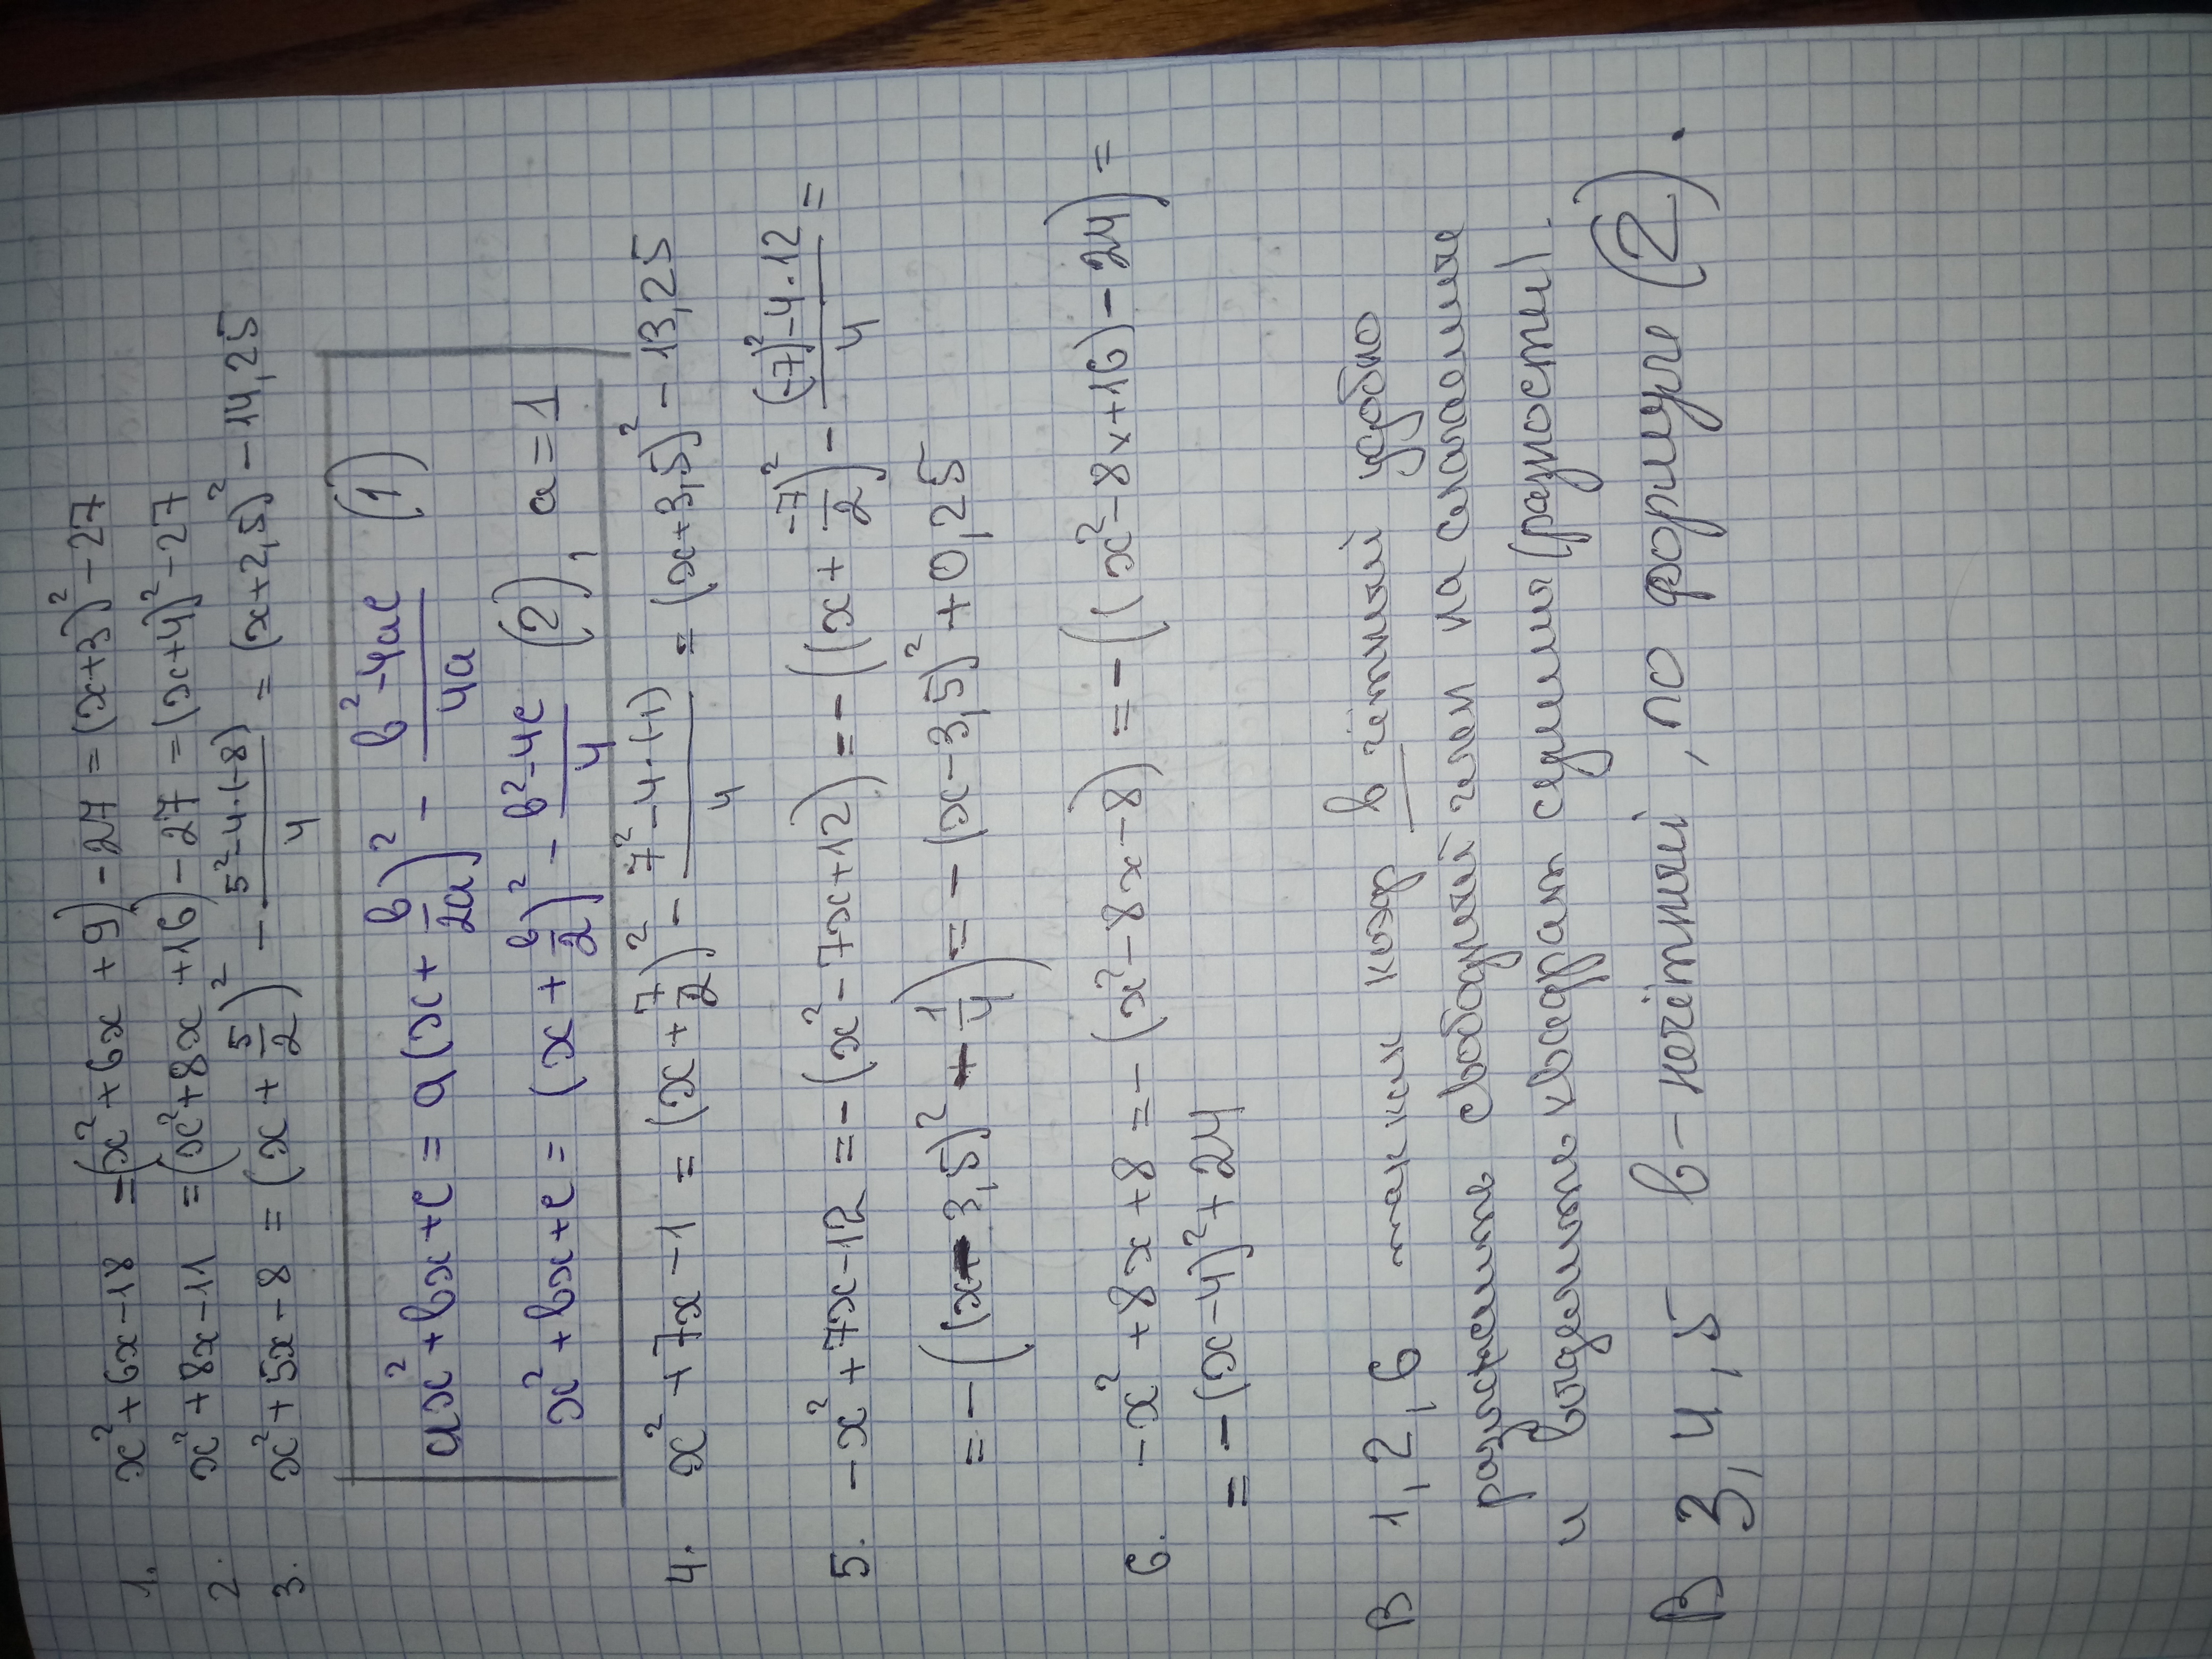 1. x² + 6x - 18 = (x² + 6x + 9) - 27 = (x+3)² - 27
2. x² + 8x - 11 = (x² + 8x + 16) - 27 = (x+4)² - 27
3. x² + 5x - 8 = (x + 5/2)² - (5² - 4·(-8))/4 = (x + 2,5)² - 14,25
ax² + bx + c = a(x + b/2a)² - (b² - 4ac)/4a (1)
x² + bx + c = (x + b/2)² - (b² - 4c)/4 (2), a = 1
4. x² + 7x - 1 = (x + 7/2)² - (7² - 4·(-1))/4 = (x + 3,5)² - 13,25
5. -x² + 7x - 12 = -(x² - 7x + 12) = -((x + -7/2)² - ((-7)² - 4·12)/4 =
= -((x - 3,5)² + 1/4) = -(x - 3,5)² + 0,25
6. -x² + 8x + 8 = -(x² - 8x - 8) = -((x² - 8x + 16) - 24) =
= -(x - 4)² + 24
В 1, 2, 6 так как коэф в чётный удобно
разложить свободный член на слагаемые
и выделить квадрат суммы (разности).
В 3, 4, 5 в - нечётный, по формуле (2).